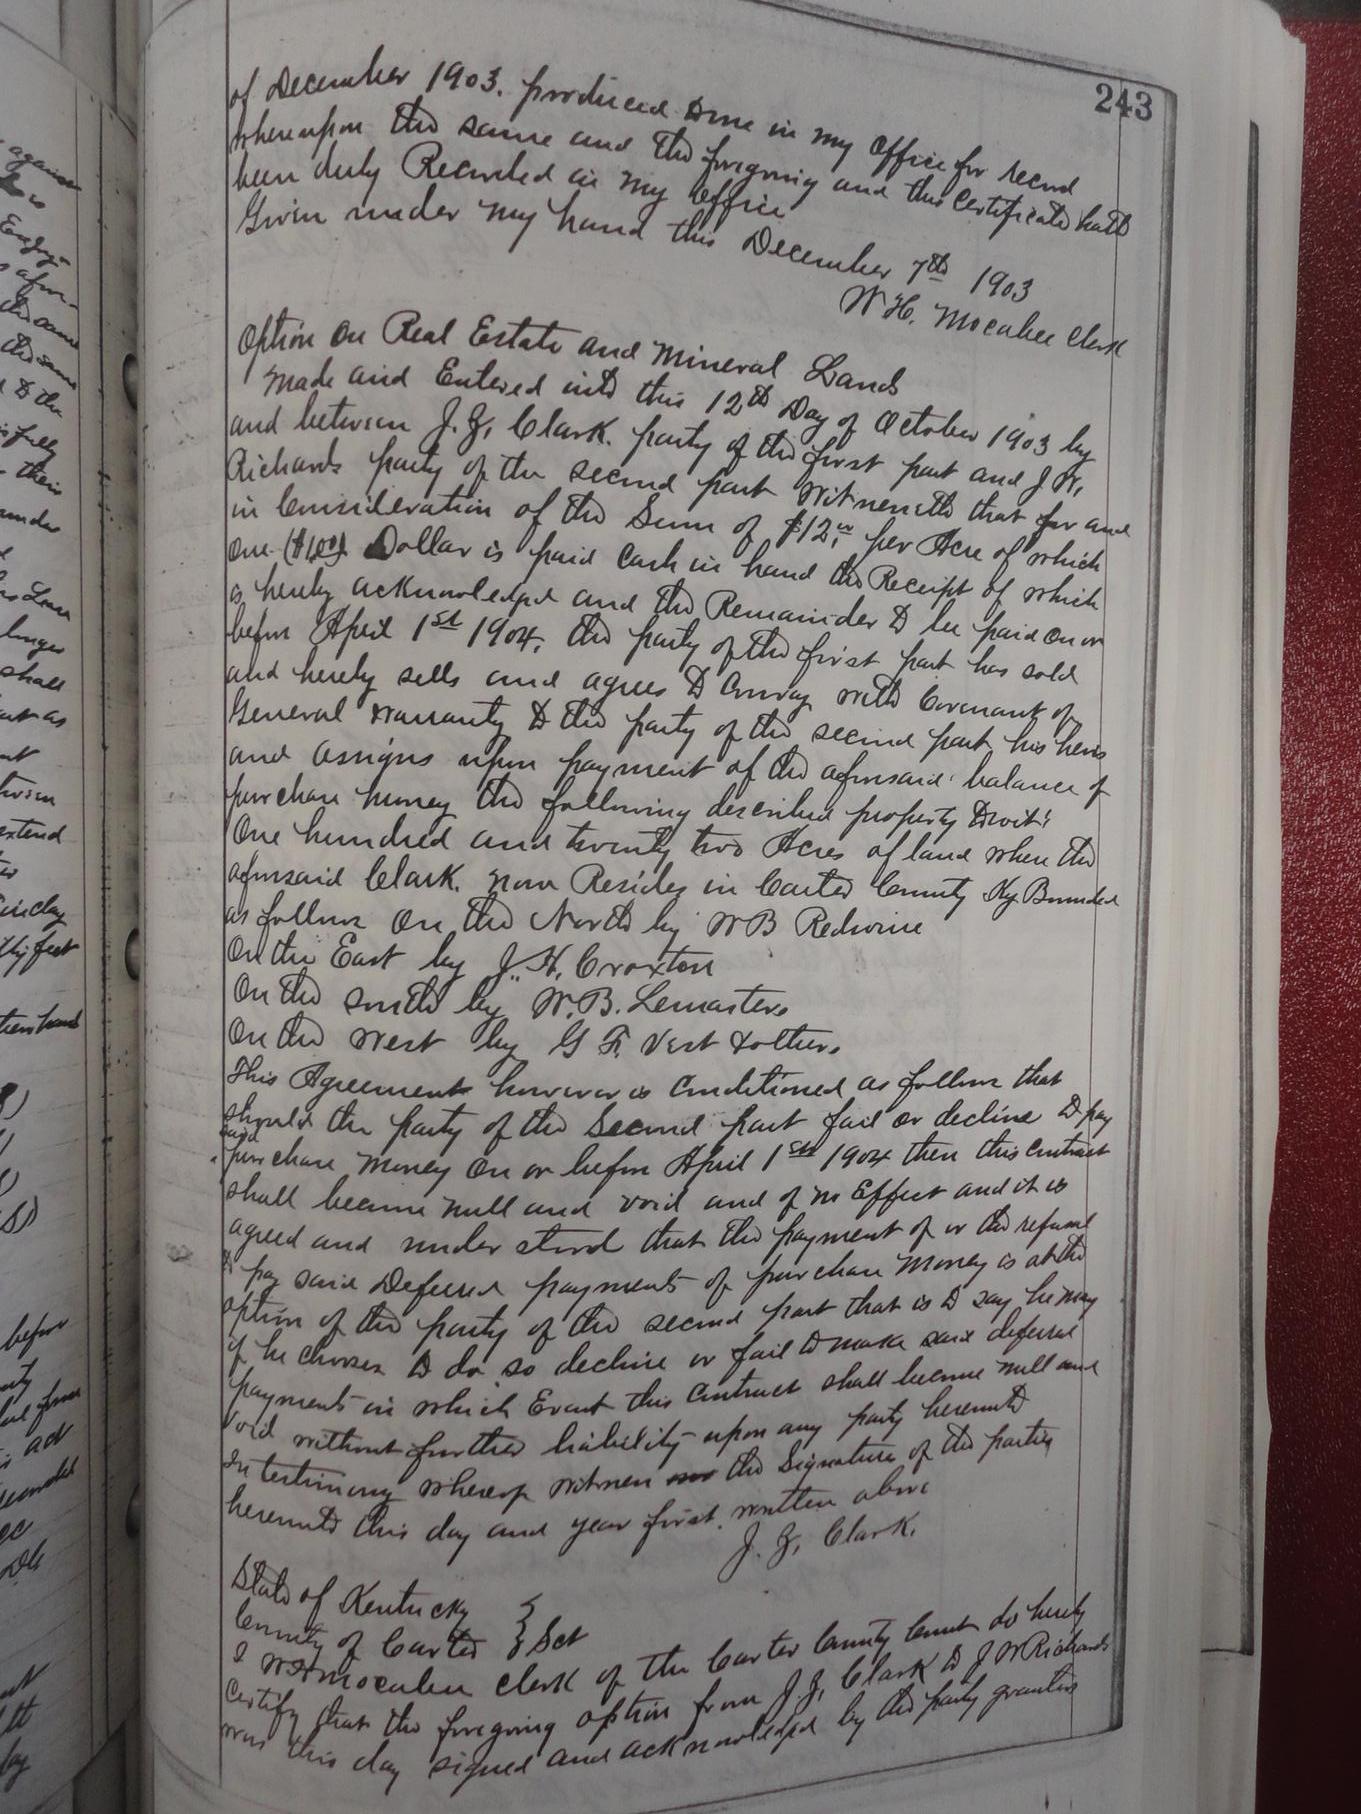 243
of December 1903. produced to me in my Office for record
whereupon the same and the foregoing and this Certificate hath
been duly Recorded in my Office
Given under my hand this December 7th 1903
W H. Mocabee Clerk
Option on Real Estate and Mineral Lands
Made and Entered into this 12th Day of October 1903 by
and between J. Z. Clark. party of the first part and J W.
Richards party of the second part Witnesseth that for and
in Consideration of the Sum of $12.00 per Acre of which
One ($1.00) Dollar is paid Cash in hand the Receipt of which
is hereby acknowledged and the Remainder to be paid on or
before April 1st 1904. the party of the first part has sold
and hereby sells and agrees to Convey with Covenant of
General Warranty to the party of the second part, his heirs
and assigns upon payment of the aforesaid balance of
purchase money the following described property towit:
One hundred and twenty two Acres of land where the
aforesaid Clark. now Resides in Carter County Ky. Bounded
as follows On the North by W B Redwine
On the East by J. H. Croxton
On the South by W. B. Lemasters
On the West by G F. Vest & others
This Agreement however is Conditioned as follows that
should the party of the Second part fail or decline to pay
said
purchase Money On or before April 1st 1904 then this contract
shall became null and void and of no Effect and it is
agreed and under stood that the payment of or the refusal
to pay said Deferred payments of purchase Money is at the
option of the party of the second part that is to say he may
if he chooses to do so decline or fail to make said deferred
payments in which Event this Contract shall become null and
void without further liability upon any party hereunto
In testimony whereof witness the Signature of the parties
hereunto this day and year first written above
J. Z. Clark.
State of Kentucky
County of Carter } Sct
I W H Mocabee clerk of the Carter County Court do hereby
Certify that the foregoing option from J. Z. Clark to J W Richards
was this day signed and acknowledged by the party grantors